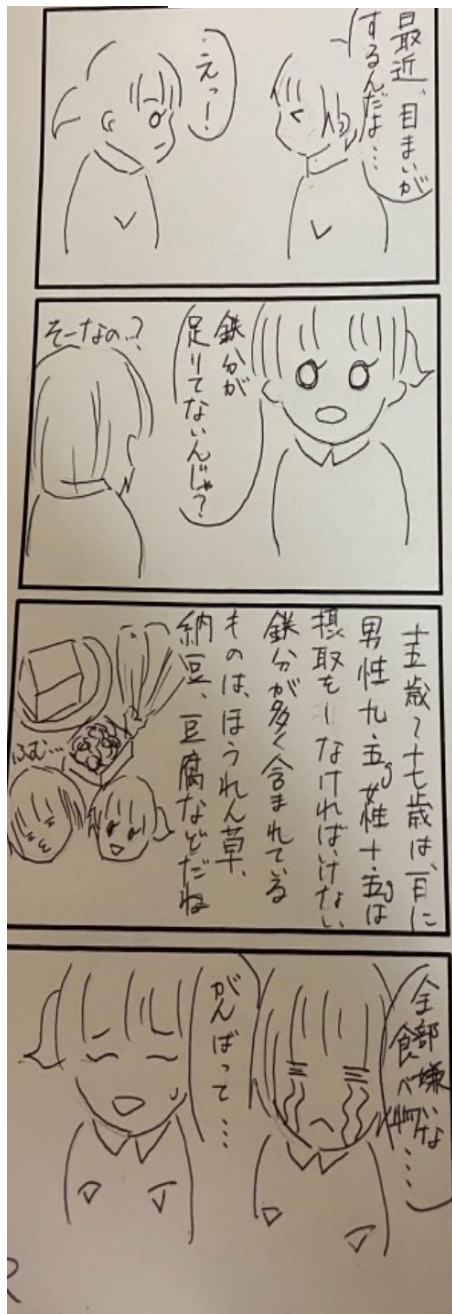 最近、目まいが
するんだよ…
…えっ!
鉄分が
足りてないんじゃ?
そーなの…?
十五歳~十七歳は、一日に
男性九.五g女性十.五gは
摂取をしなければいけない
鉄分が多く含まれている
ものは、ほうれん草、
納豆、豆腐などだね
ふむ…
全部嫌いな
食べ物…
がんばって…